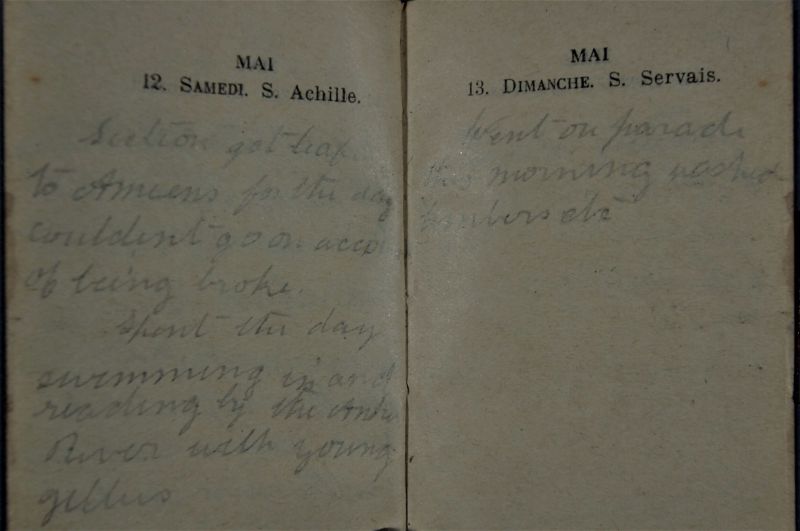 MAI
12. SAMEDI. S. Achille.
Section got leave
to Amiens for the day
couldent go on accou
of being broke.
Spent the day
swimming in and
reading by the
River with young
MAI
13. DIMANCHE. S. Servais.
Went on parade
this morning washed
limbers etc